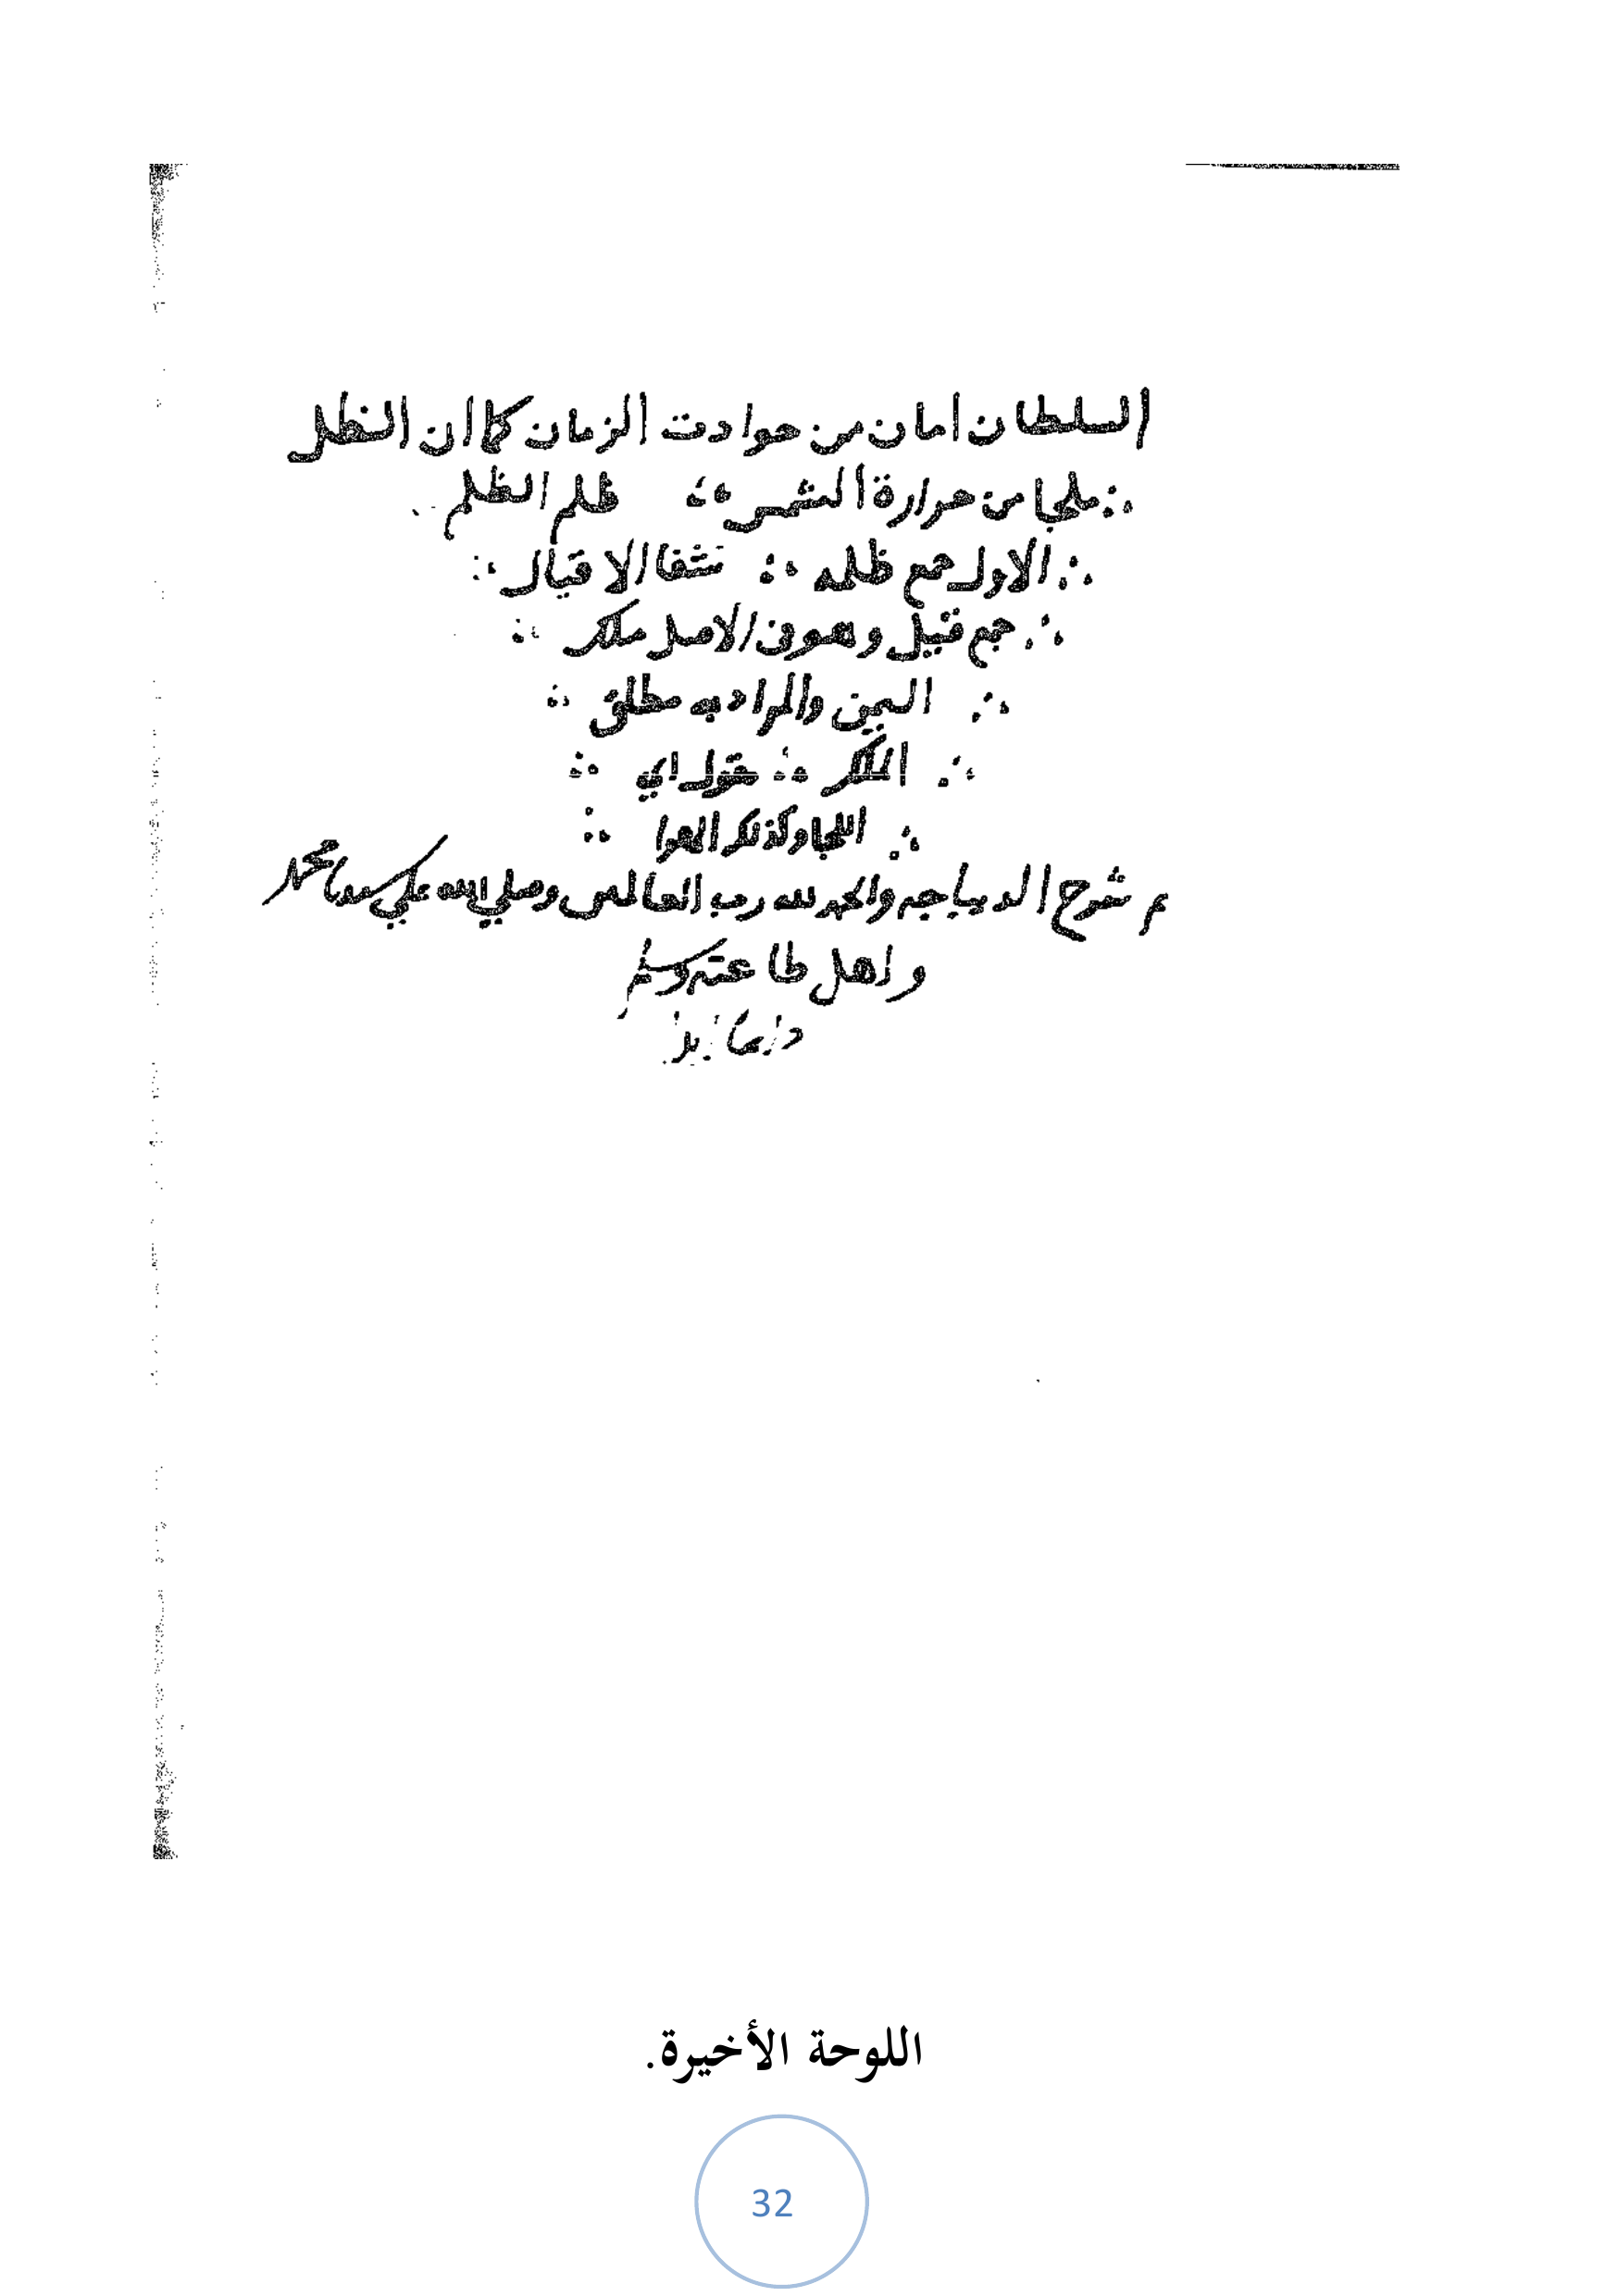 السلطان امان من حوادت الزمان كما ان الظل
∴ ملجا من حرارة الشمس ∴ ظلم الظلم
∴ الاول جمع ظلمه ∴ شفا الاقيال ∴
∴ جمع قيل وهو فى الاصل ملك ∴
∴ اليمن والمراد به مطلق ∴
∴ الملك ∴ حول اي ∴
∴ اللجا وكذلك الهوا ∴
تم شرح الديباجه والحمد لله رب العالمين وصلي الله علي سيدنا محمد
واهل طاعته وسلم
اللوحة الأخيرة.
32